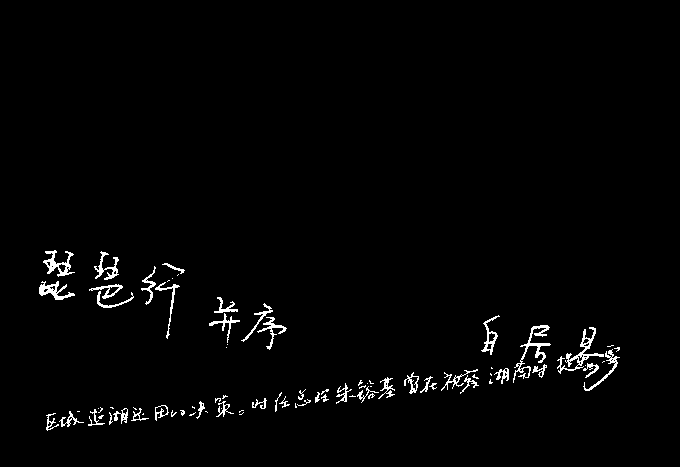 琵琶行 并序 白居易
区域退湖还田的决策。时任总理朱镕基曾在视察湖南时提